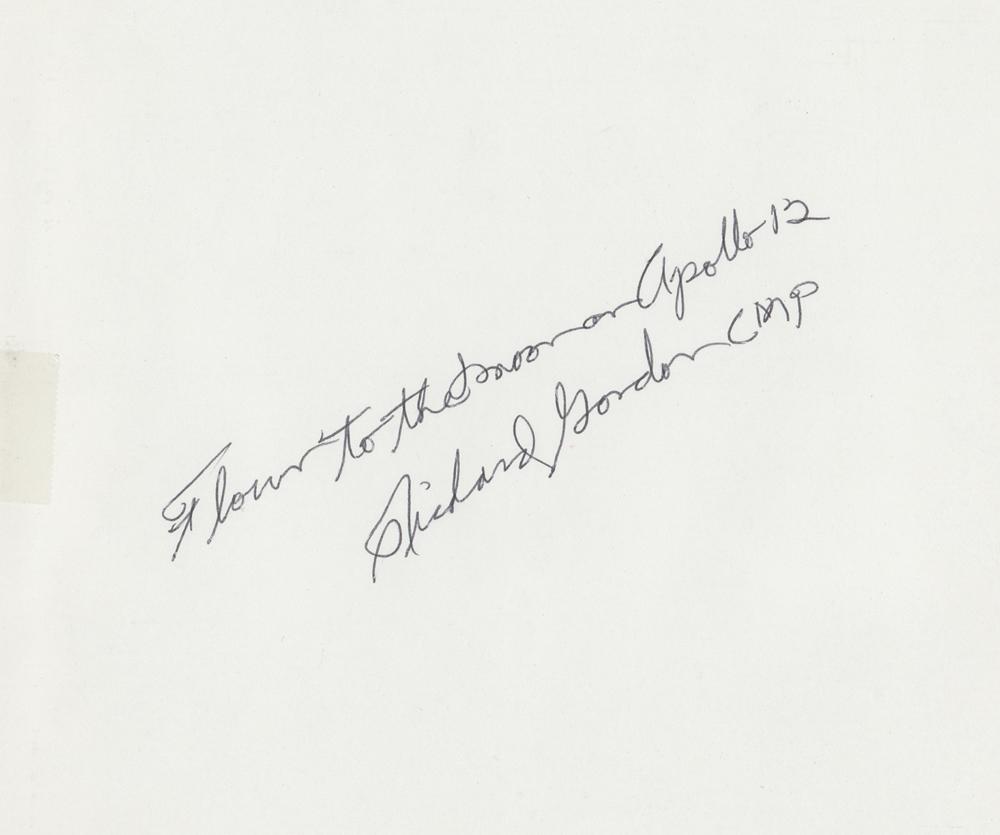 Flown to the moon on Apollo 12
Richard Gordon CMP